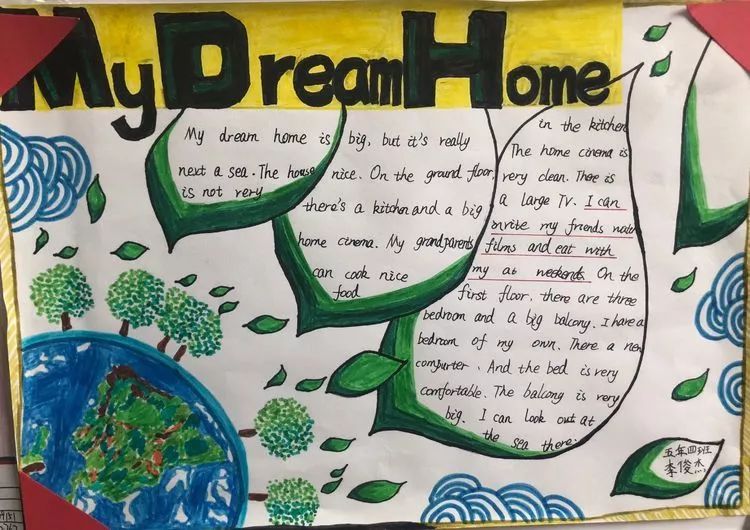 My Dream Home
My dream home is big, but it's really
next a sea. The house nice. On the ground floor,
is not very
there's a kitchen and a big
home cinema. My grandparents
can cook nice
food
in the kitchen
The home cinema is
very clean. There is
a large TV. I can
invite my friends
films and eat with
my at weekends. On the
first floor, there are three
bedroom and a big balcony. I have a
bedroom of my own. There a new
compurter. And the bed is very
comfortable. The balcong is very
big. I can look out at
the sea there.
五年四班
李俊杰